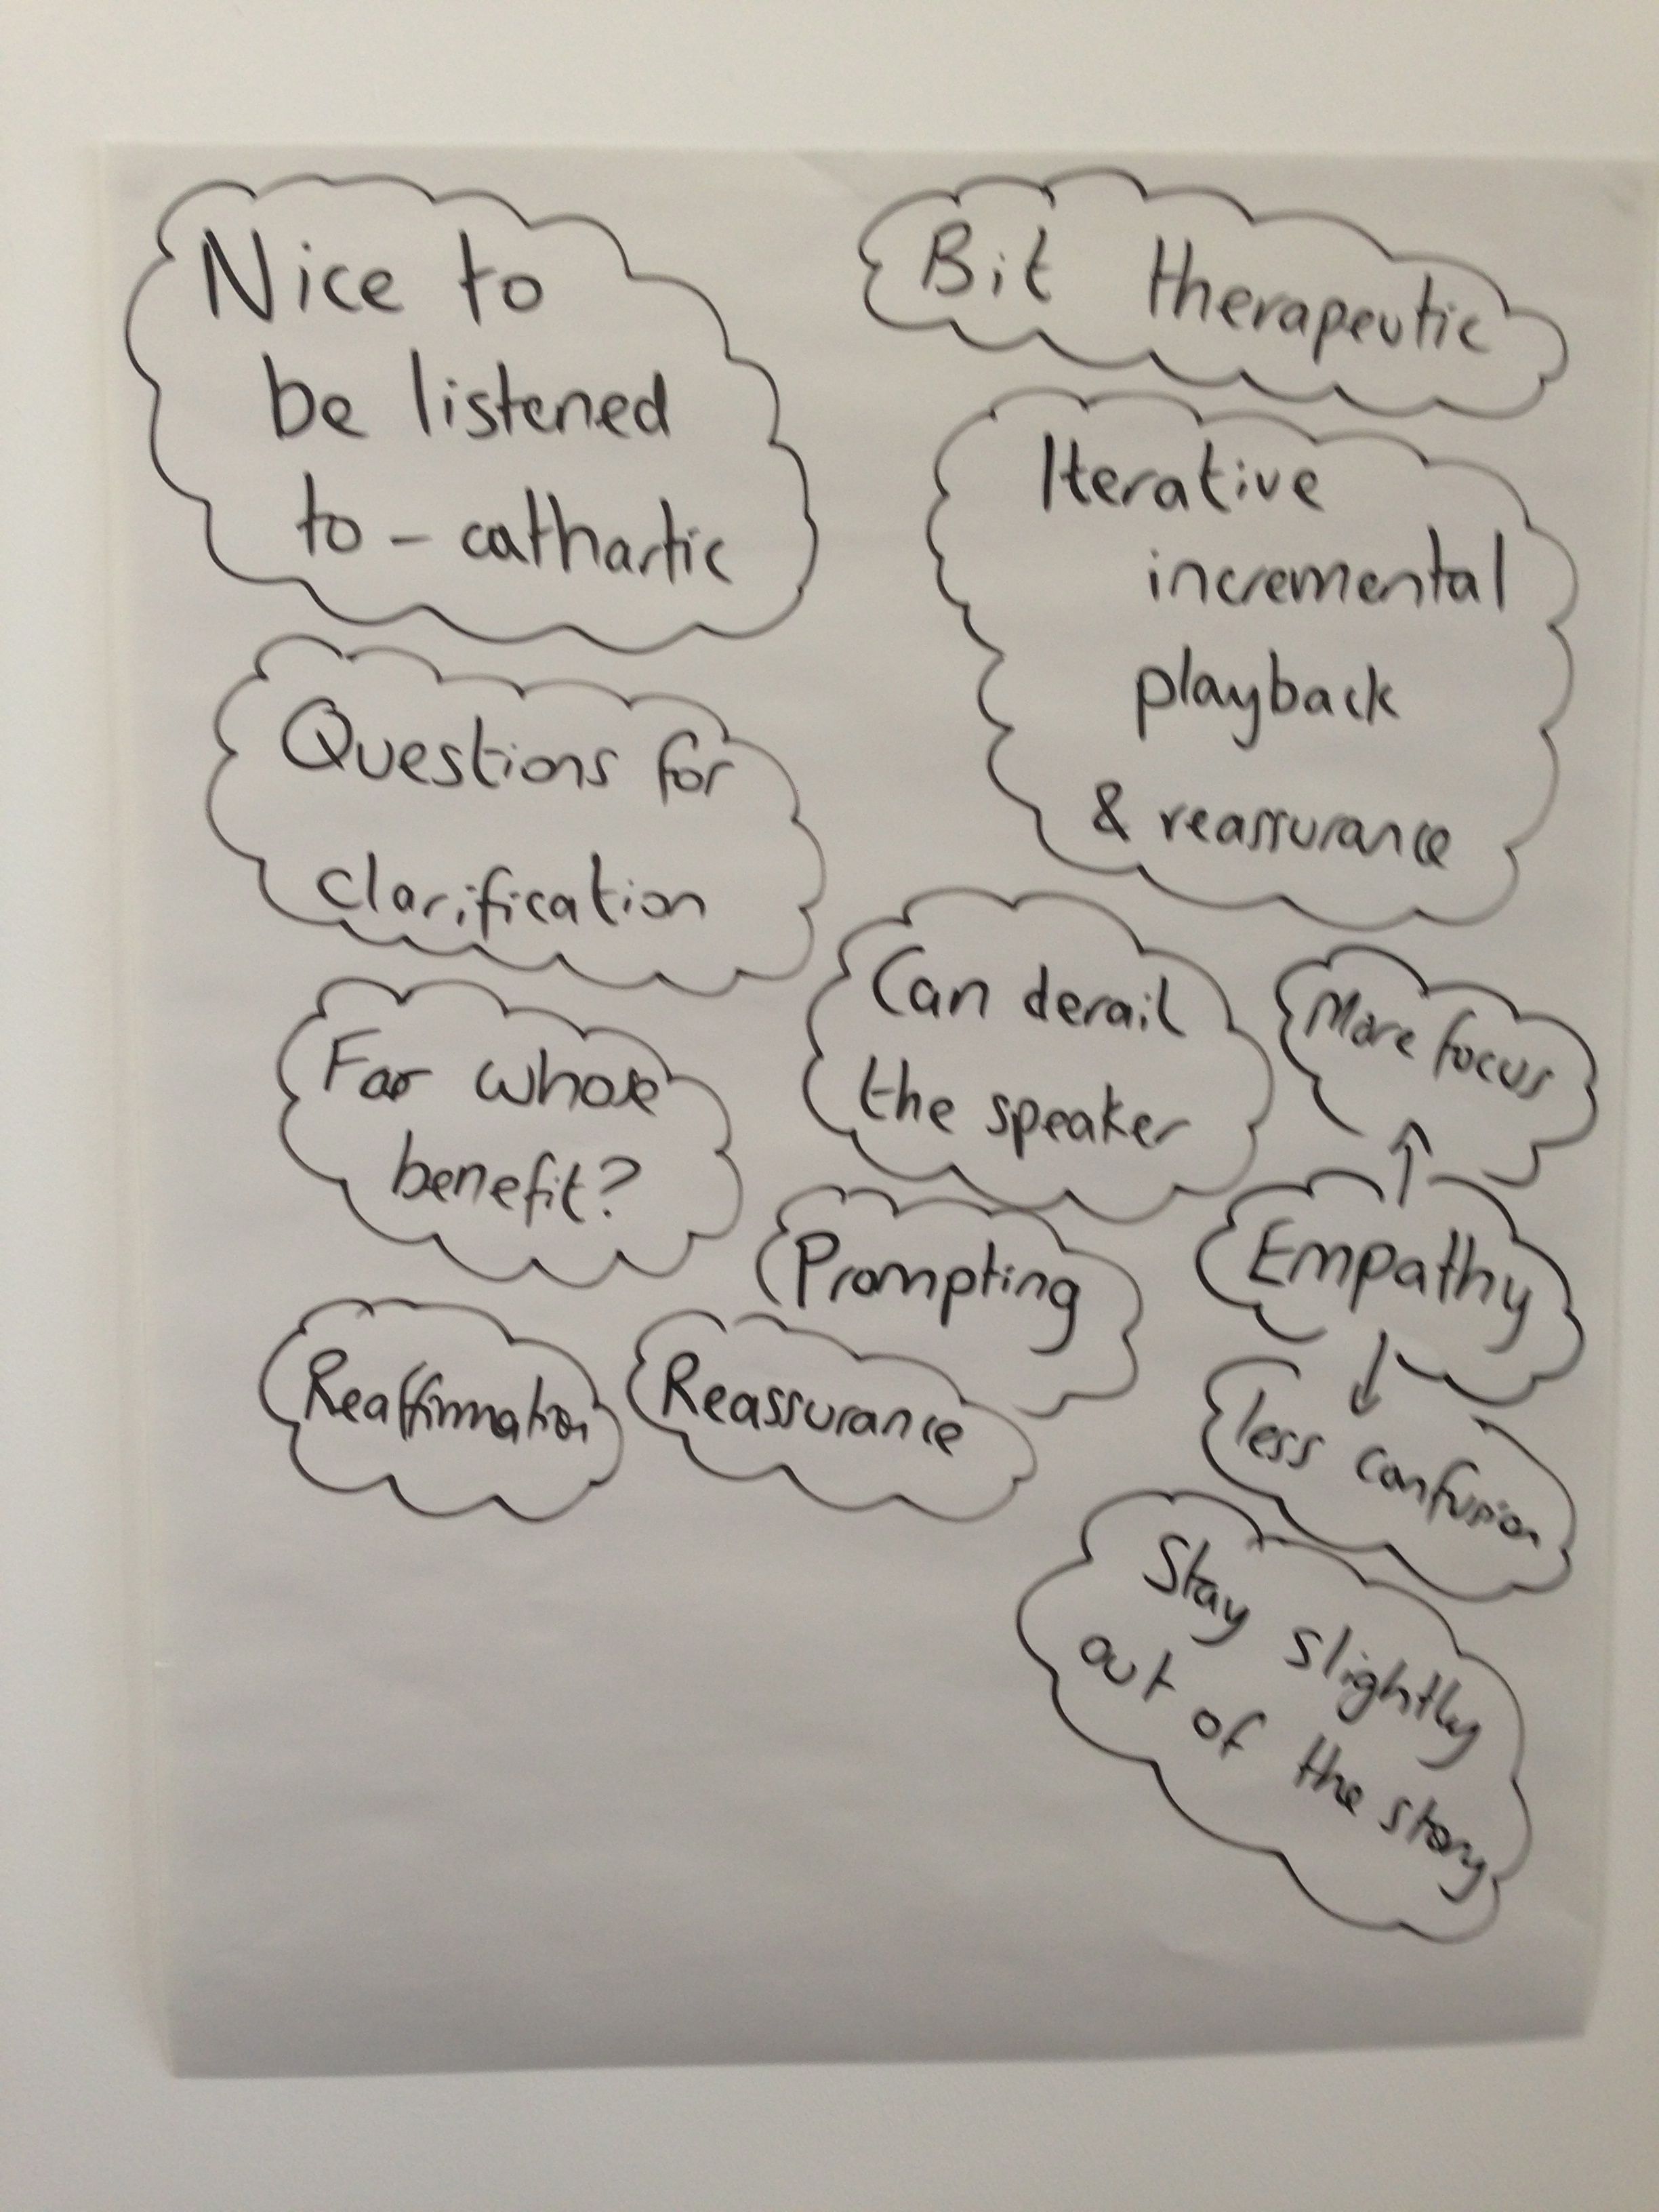 Nice to
be listened
to - cathartic
Bit therapeutic
Iterative
incremental
playback
& reassurance
Questions for
clarification
Can derail
the speaker
More focus
For whose
benefit?
Prompting
Empathy
Reaffirmation
Reassurance
less confusion
Stay slightly
out of the story